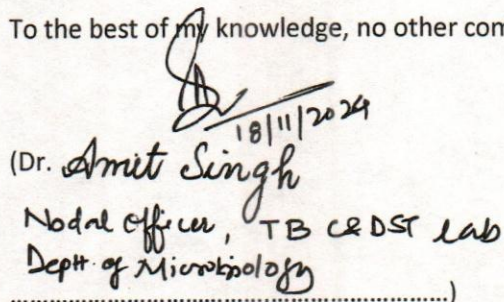 To the best of my knowledge, no other com
18/11/2024
(Dr. Amit Singh
Nodal Officer, TB C&DST Lab
Deptt. of Microbiology
....................................................................)